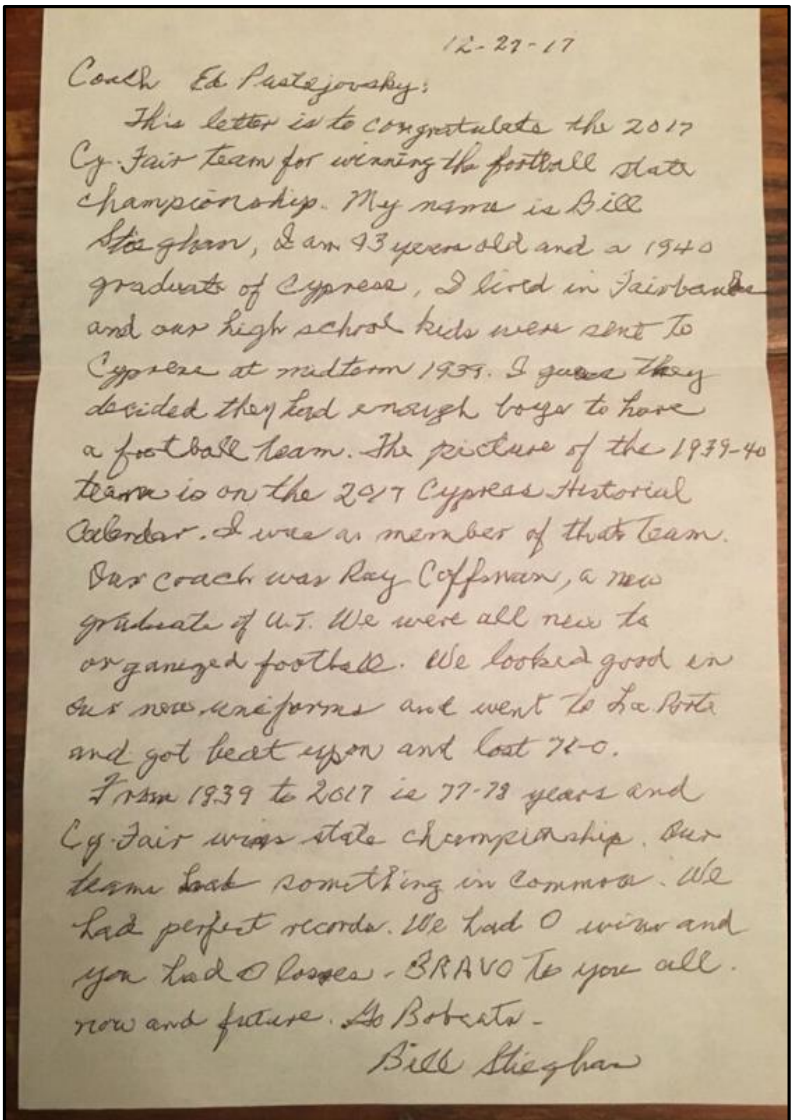 12-27-17
Coach Ed Pustejovsky:
This letter is to congratulate the 2017
Cy-Fair team for winning the football state
championship. My name is Bill
Stieghan, I am 93 years old and a 1940
graduate of Cypress, I lived in Fairbanks
and our high school kids were sent to
Cypress at midterm 1939. I guess they
decided they had enough boys to have
a football team. The picture of the 1939-40
team is on the 2017 Cypress Historial
Calendar. I was a member of that team.
Our coach was Ray Coffman, a new
graduate of U.T. We were all new to
organized football. We looked good in
our new uniforms and went to La Porte
and got beat upon and lost 71-0.
From 1939 to 2017 is 77-78 years and
Cy-Fair wins state championship. Our
teams had something in common. We
had perfect records. We had 0 wins and
you had 0 losses - BRAVO to you all.
now and future. Go Bobcats -
Bill Stieghan